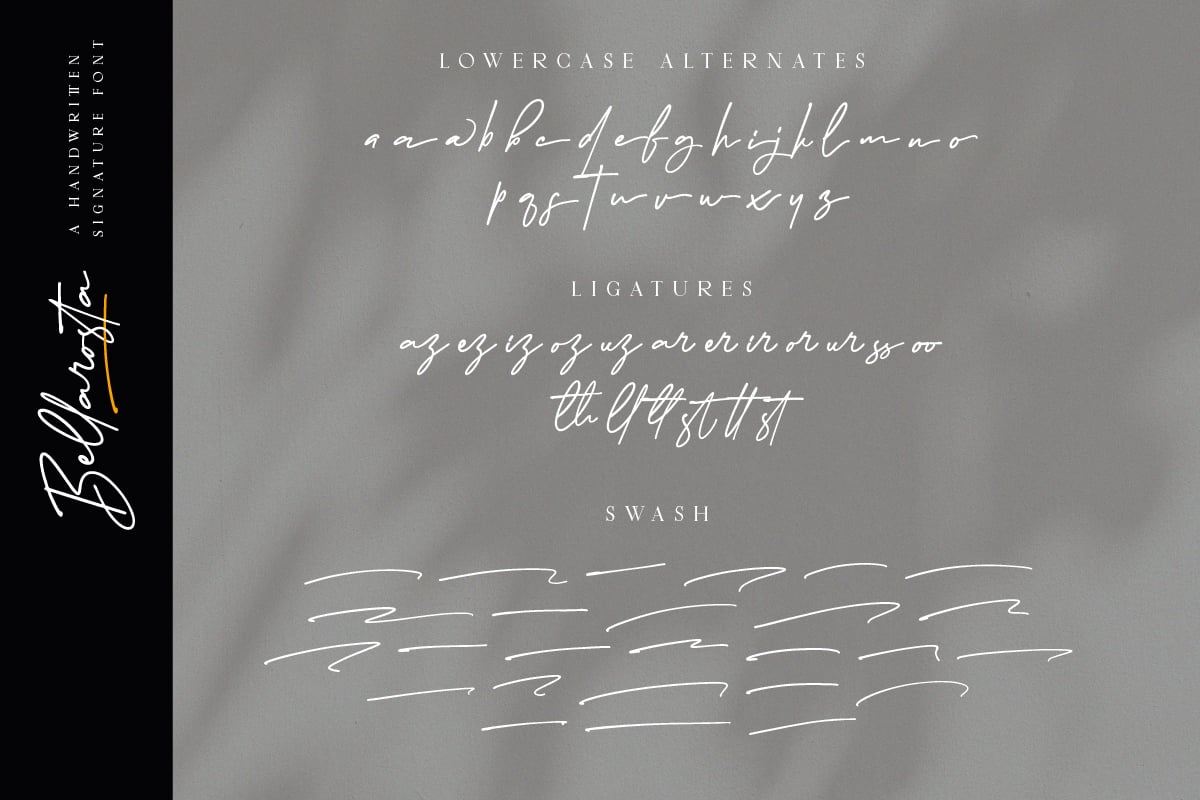 A HANDWRITTEN
SIGNATURE FONT
Bellarosta
LOWERCASE ALTERNATES
a a a b b c d e f g h i j k l m n o
p q s t u v w x y z
LIGATURES
az ez iz oz uz ar er ir or ur ss oo
th tt st tt st
SWASH